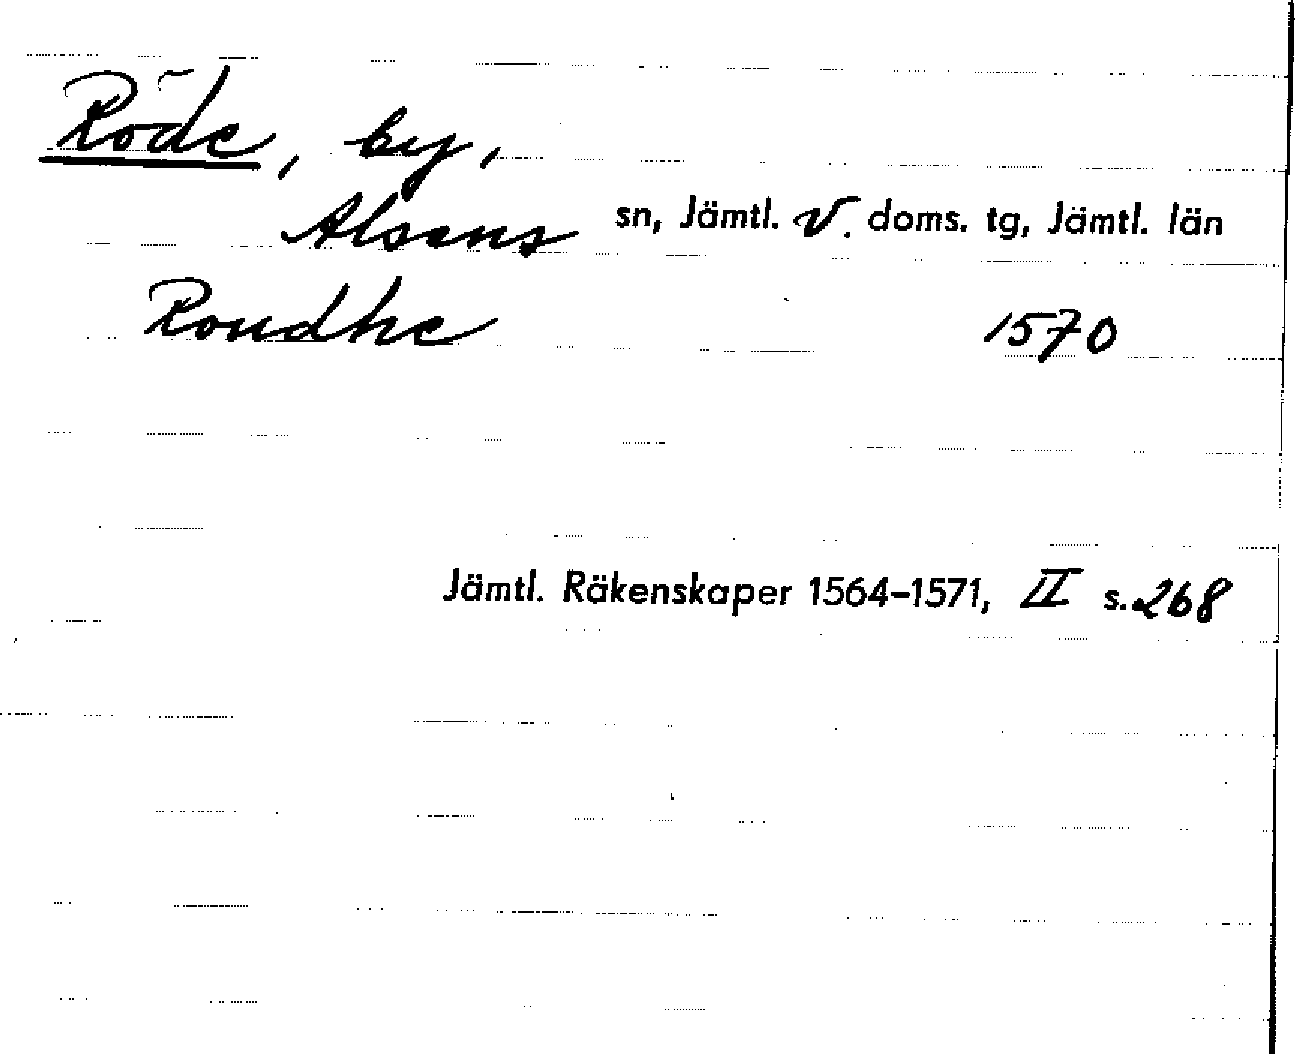 Röde, by,
Alsens sn, Jämtl. v. doms. tg, Jämtl. län
Roudhe 1570
Jämtl. Räkenskaper 1564–1571, II s. 268